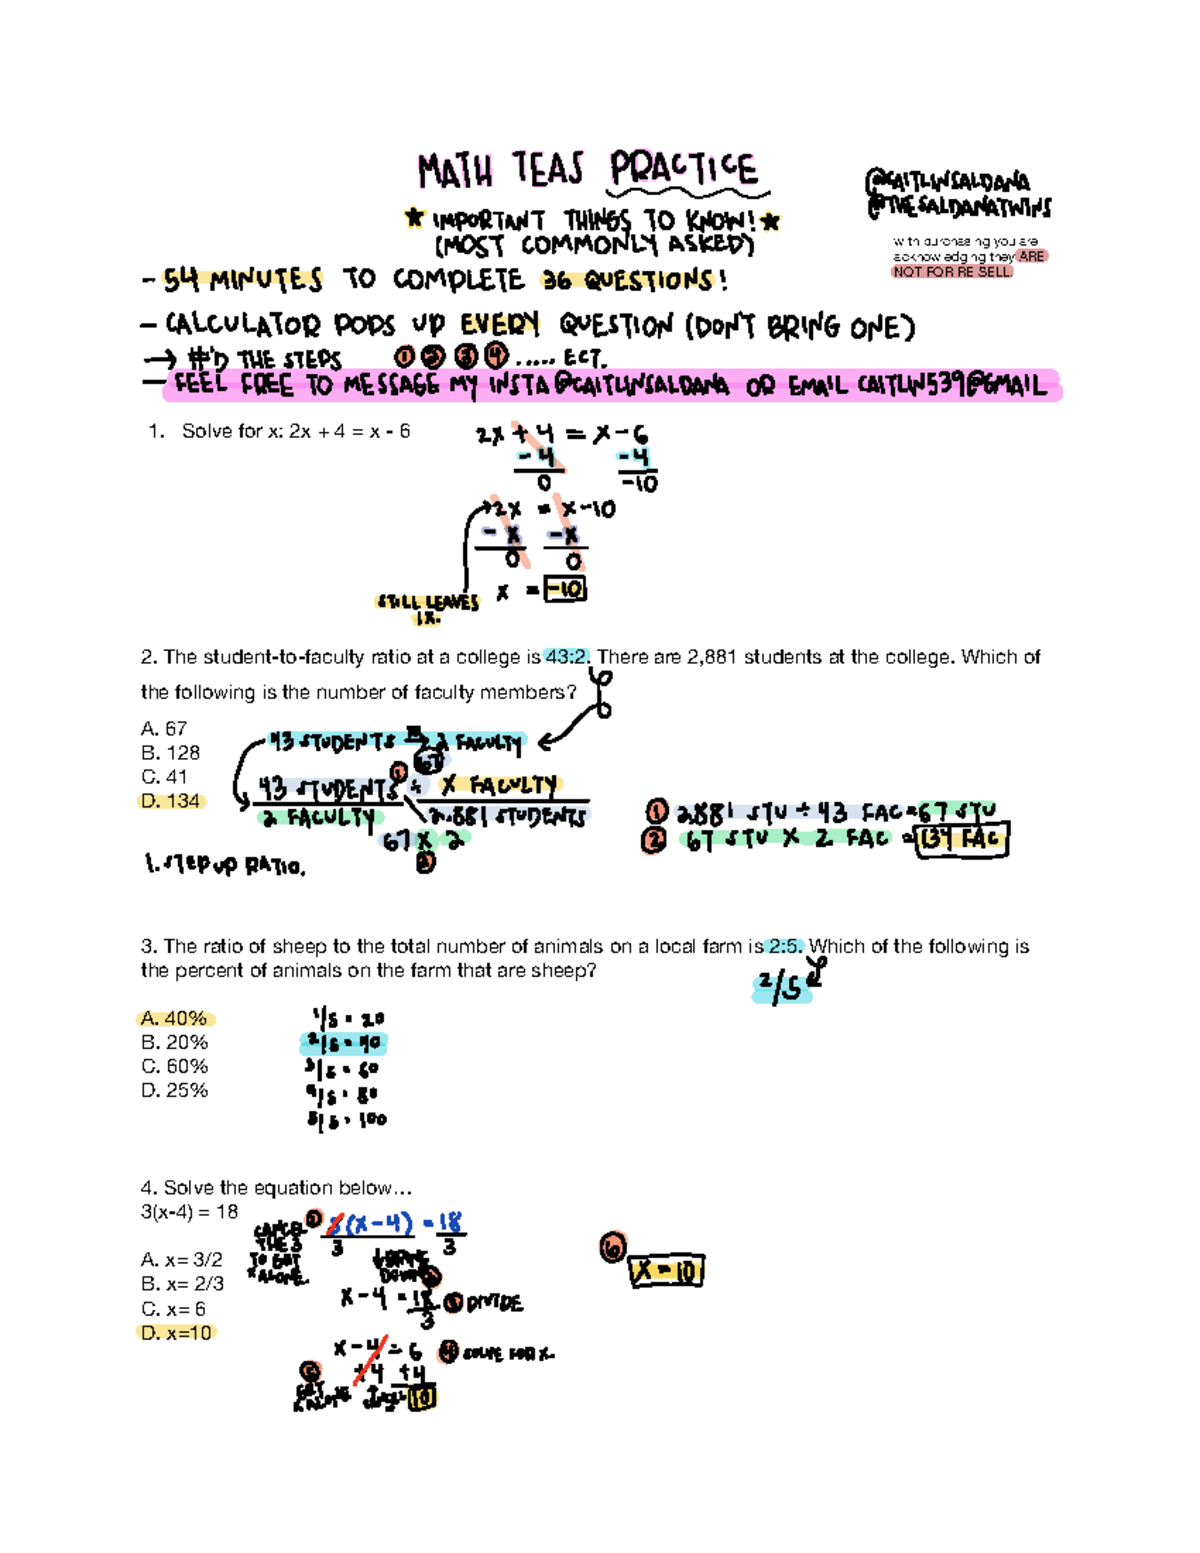 MATH TEAS PRACTICE
@CAITLINSALDANA
@THESALDANATWINS
★ IMPORTANT THINGS TO KNOW! ★
(MOST COMMONLY ASKED)
with purchasing you are
acknowledging they ARE
NOT FOR RE SELL
- 54 MINUTES TO COMPLETE 36 QUESTIONS!
- CALCULATOR POPS UP EVERY QUESTION (DON'T BRING ONE)
→ #'D THE STEPS 1 2 3 4 ..... ECT.
- FEEL FREE TO MESSAGE MY INSTA @CAITLINSALDANA OR EMAIL CAITLIN539@GMAIL
1. Solve for x: 2x + 4 = x - 6
2x + 4 = x - 6
- 4 - 4
0 -10
2x = x - 10
- x - x
0 0
x = -10
STILL LEAVES
1x.
2. The student-to-faculty ratio at a college is 43:2. There are 2,881 students at the college. Which of
the following is the number of faculty members?
A. 67
B. 128
C. 41
D. 134
43 STUDENTS 2 FACULTY
67
43 STUDENTS ÷ X FACULTY
2 FACULTY 2.881 STUDENTS
67 x 2
1 2881 STU ÷ 43 FAC = 67 STU
2 67 STU X 2 FAC = 134 FAC
1. STEP UP RATIO.
3. The ratio of sheep to the total number of animals on a local farm is 2:5. Which of the following is
the percent of animals on the farm that are sheep?
2/5
A. 40%
B. 20%
C. 60%
D. 25%
1/5 = 20
2/5 = 40
3/5 = 60
4/5 = 80
5/5 = 100
4. Solve the equation below...
3(x-4) = 18
A. x= 3/2
B. x= 2/3
C. x= 6
D. x=10
CANCEL
THE 3
TO GET
X ALONE.
3(x-4) = 18
3 3
DOWN
x - 4 = 18
3
3 DIVIDE
x - 4 = 6
4 SOLVE FOR X.
+4 +4
5
GET
X ALONE
10
6
x = 10